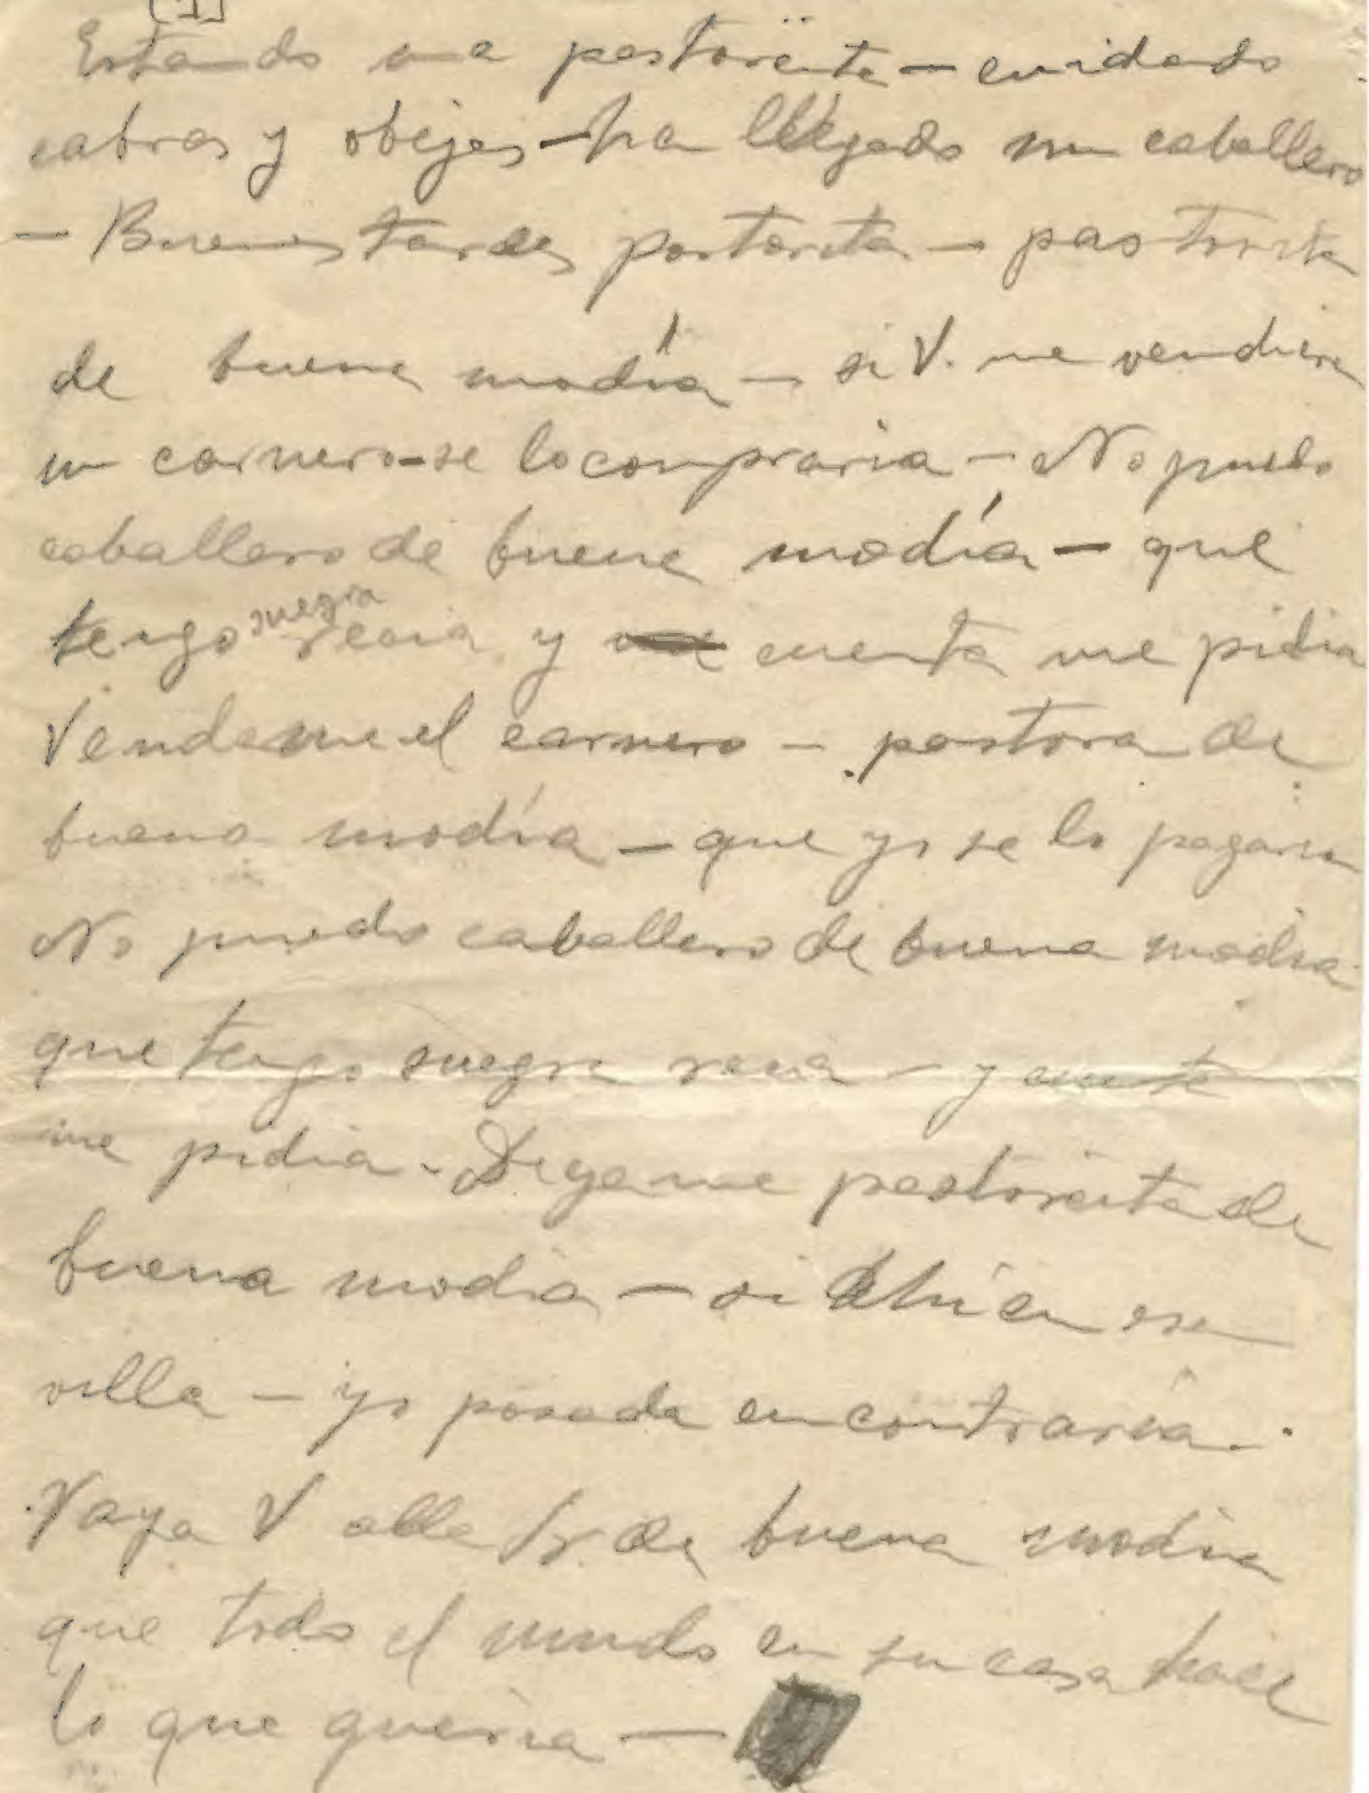 [1]
Estando una pastorcita — cuidado
cabras y obejas — ha llegado un caballero
— Buenas tardes pastorcita — pastorcita
de buena modía — si V. me vendiera
un carnero — se lo compraria — No puedo
caballero de buena modía — que
tengo suegra recia y cuenta me pidia
Vendame el carnero — pastora de
buena modía — que yo se lo pagaria
No puedo caballero de buena modia
que tengo suegra recia — y cuenta
me pidia - Digame pastorcita de
buena modia — si ahi en esa
villa — yo posada encontraria.
Vaya V alla de buena modia
que todo el mundo en su casa hace
lo que queria —